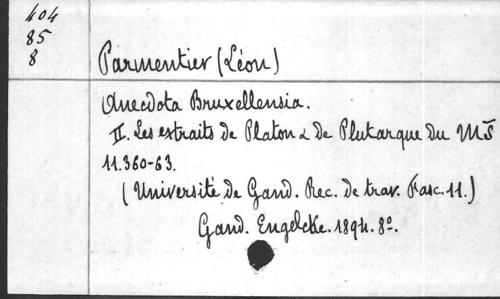 404
85
8
Parmentier (Léon)
Anecdota Bruxellensia.
II. Les extraits de Platon & de Plutarque du MS̄
11.360-63.
(Université de Gand. Rec. de trav. Fasc. 11.)
Gand. Engelcke. 1894. 8º.